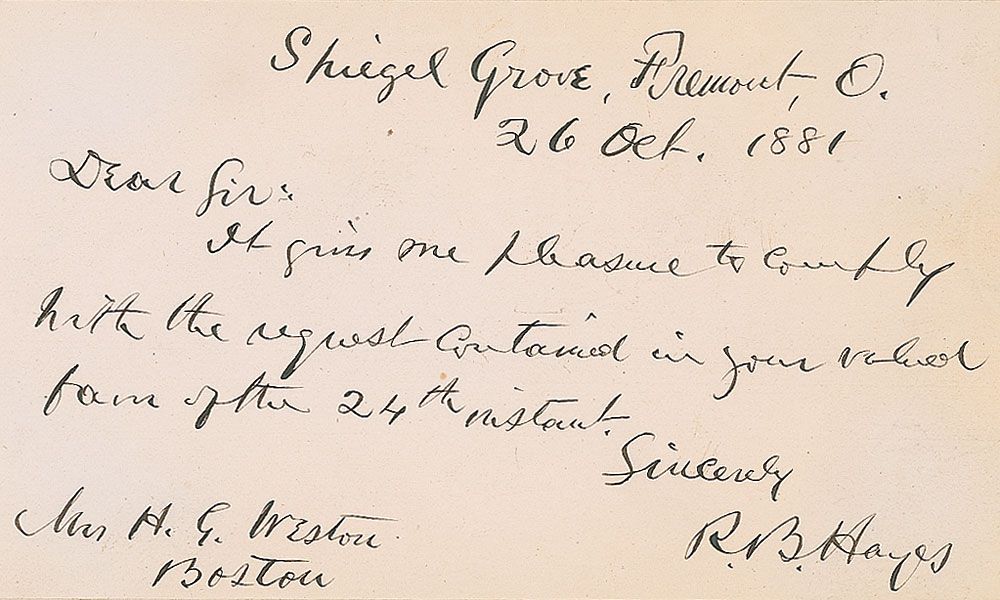 Spiegel Grove, Fremont, O.
26 Oct. 1881
Dear Sir:
It gives me pleasure to comply
with the request contained in your valued
favor of the 24th instant.
Sincerely
R. B. Hayes
H. G. Weston
Boston